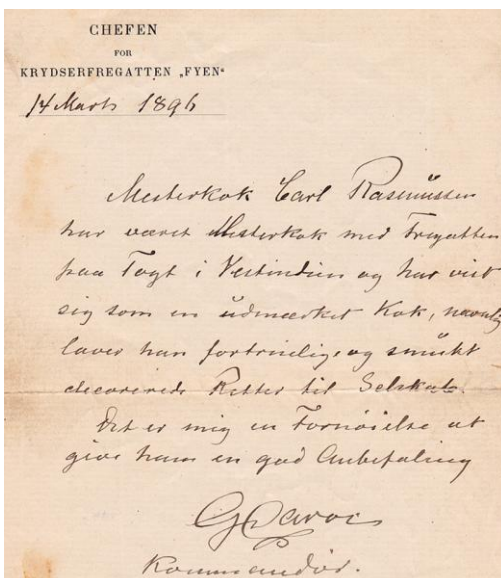 CHEFEN
FOR
KRYDSERFREGATTEN „FYEN“
14 Marts 1896
Mesterkok Carl Rasmussen
har været Mesterkok med Fregatten
paa Togt i Vestindien og har viist
sig som en udmærket Kok, navnlig
laver han fortrinlige og smukt
decorerede Retter til Selskab.
Det er mig en Fornøielse at
give ham en god Anbefaling
Kommandør.